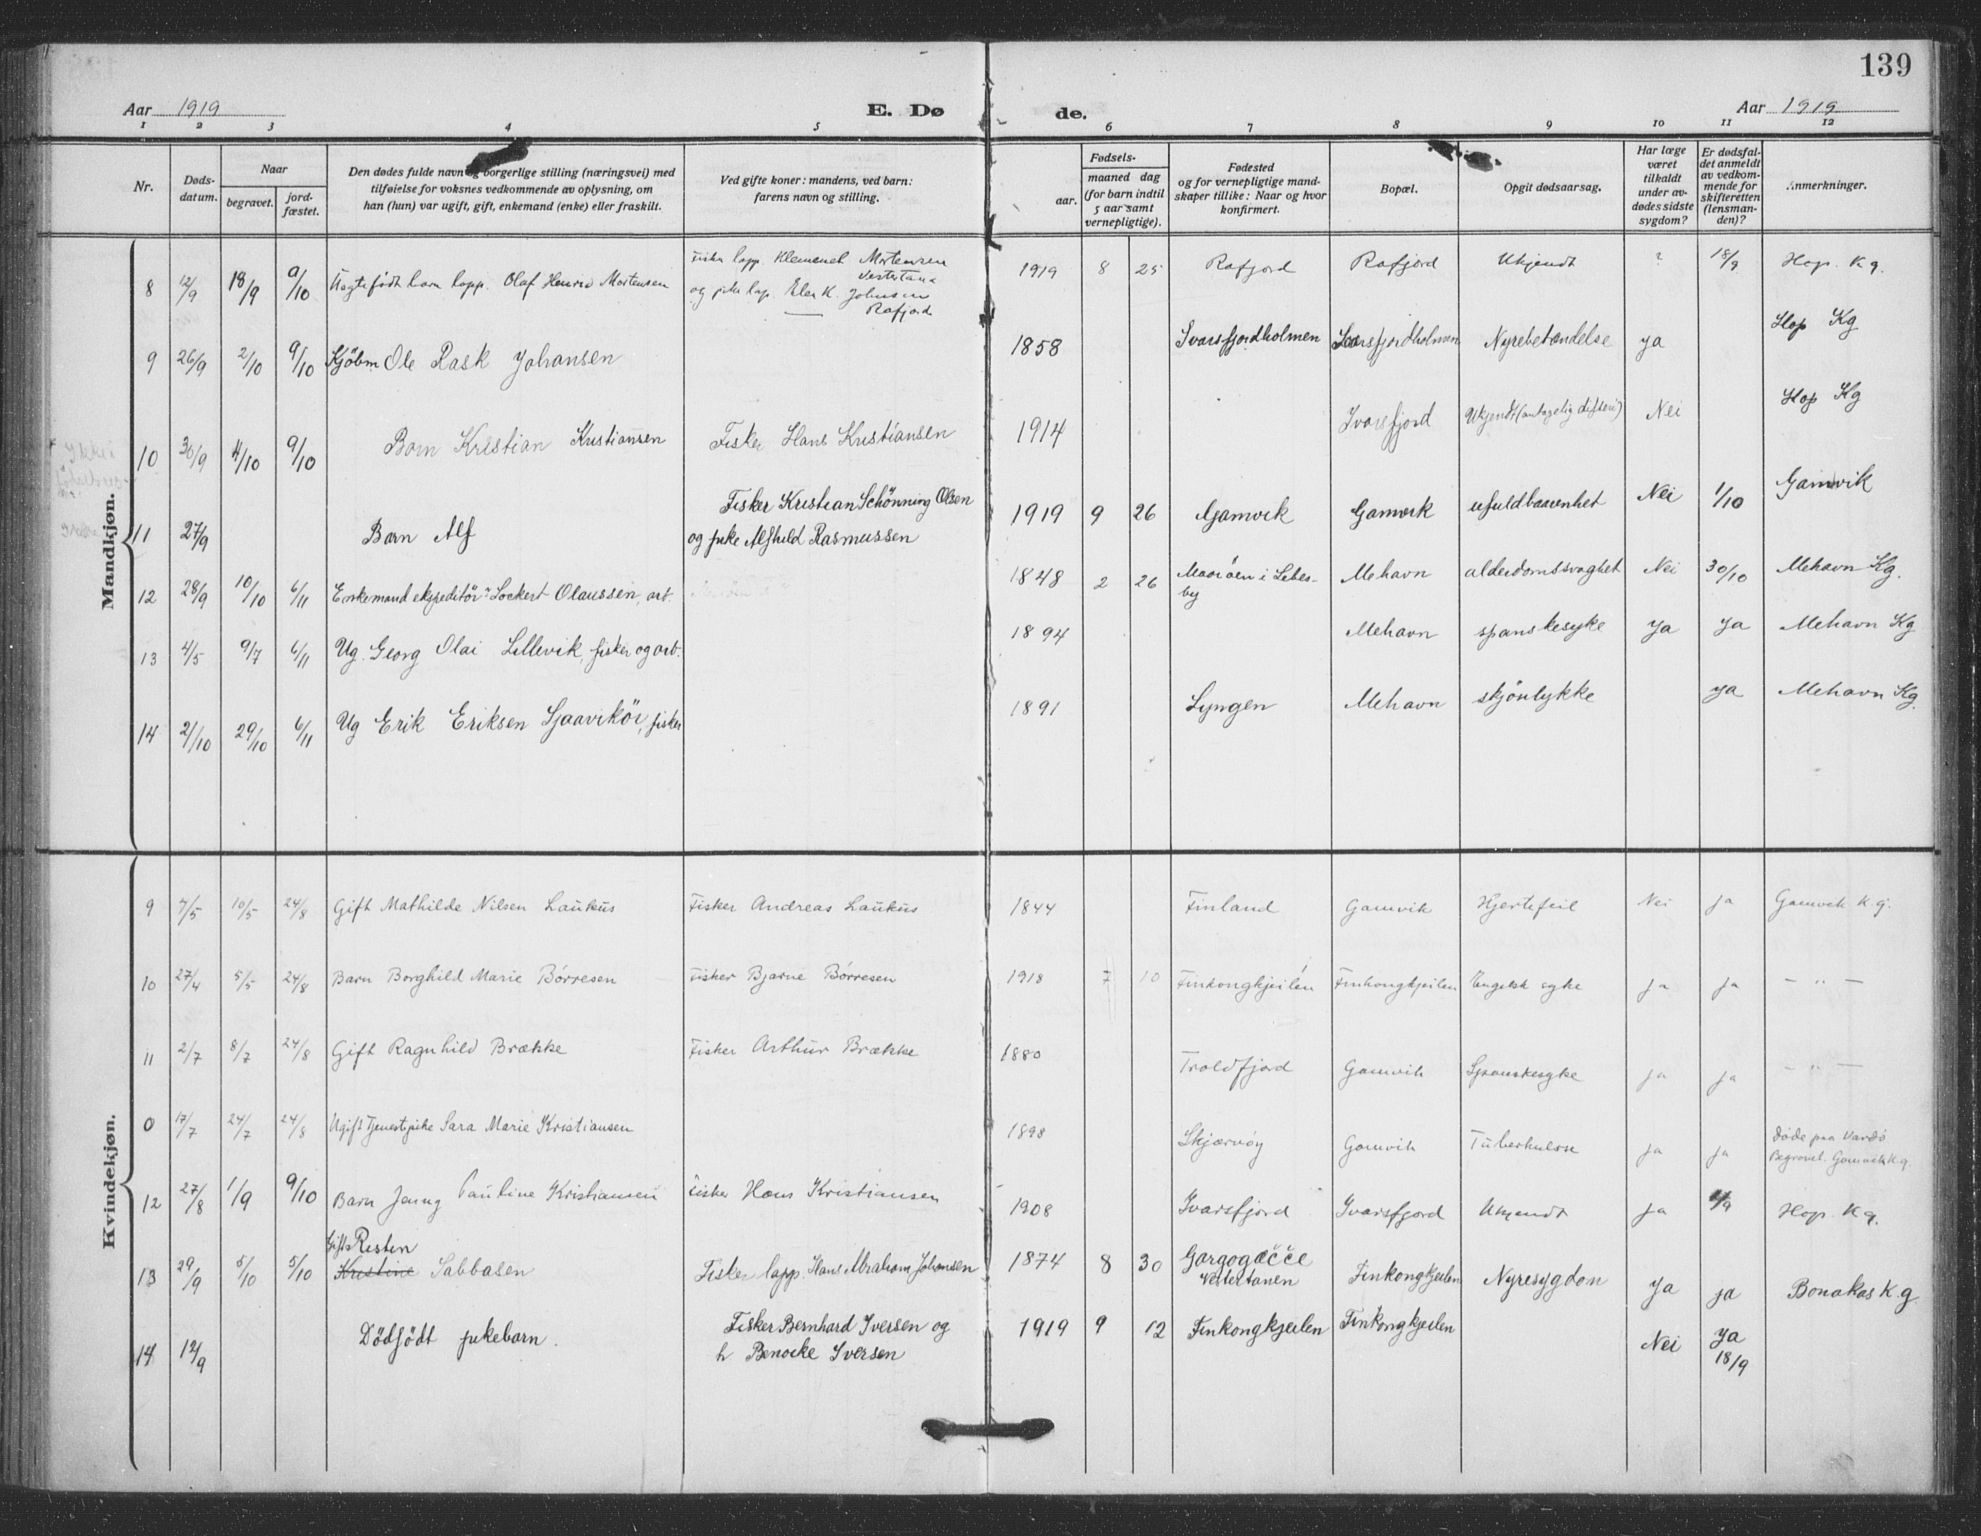 139
Aar 1919
E. Dø de.
Aar 1919
1 2 3 4 5 6 7 8 9 10 11 12
Nr.
Døds-datum.
Naar
begravet.
jord-fæstet.
Den dødes fulde navn og borgerlige stilling (næringsvei) med
tilføielse for voksnes vedkommende av oplysning, om
han (hun) var ugift, gift, enkemand (enke) eller fraskilt.
Ved gifte koner: mandens, ved barn:
farens navn og stilling.
Fødsels-
aar.
maaned dag
(for barn indtil
5 aar samt
vernepligtige).
Fødested
og for vernepligtige mand-
skaper tillike: Naar og hvor
konfirmert.
Bopæl.
Opgit dødsaarsag.
Har læge
været
tilkaldt
under av-
dødes sidste
sygdom?
Er dødsfal-
det anmeldt
av vedkom-
mende for
skifteretten
(lensman-
den)?
Anmerkninger.
Mandkjøn.
8 12/9 18/9 9/10 Uegtefødt barn lapp. Olaf Henrik Mortensen
Fisker lapp. Klemenet Mortensen
Vestertana
og pike lap. Elen K. Johnsen
Rafjord
1919 8 25 Rafjord Rafjord Ukjendt ? 18/9 Hop. Kg.
9 26/9 2/10 9/10 Kjöbm Ole Rask Johansen 1858 Ivarsfjordholmen Ivarsfjordholmen Nyrebetændelse ja Hop Kg
10 30/9 4/10 9/10 Barn Kristian Kristiansen Fisker Hans Kristiansen 1914 Ivarsfjord Ukjendt (antagelig difteri) Nei Hop Kg
11 27/9 Barn Alf
Fisker Kristian Schönning Olsen
og pike Alfhild Rasmussen
1919 9 26 Gamvik Gamvik ufuldbaarenhet Nei 1/10 Gamvik
12 28/9 10/10 6/11 Enkemand ekspeditör Lockert Olaussen, arb. 1848 2 26 i Lebes-
by
Mehavn alderdomssvaghet Nei 30/10 Mehavn Kg.
13 4/5 9/7 6/11 Ug. Georg Olai Lillevik, fisker og arb. 1894 Mehavn spanskesyke Ja Ja Mehavn Kg
14 21/10 29/10 6/11 Ug Erik Eriksen Sjaavikör, fisker 1891 Lyngen Mehavn skjönlykke ja Mehavn Kg.
Kvindekjøn.
9 7/5 10/5 24/8 Gift Mathilde Nilsen Laukus Fisker Andreas Laukus 1844 Finland Gamvik Hjertefeil Nei ja Gamvik K.g.
10 27/4 5/5 24/8 Barn Borghild Marie Børresen Fisker Bjarne Børresen 1918 7 10 Finkongkjeilen Finkongkjeilen Engelsk syke ja ja — " —
11 2/7 8/7 24/8 Gift Ragnhild Brække Fisker Arthur Brække 1880 Troldfjord Gamvik Spanskesyke ja ja — " —
0 17/7 24/7 24/8 Ugift Tjenestpike Sara Marie Kristiansen 1898 Skjærvöy Gamvik Tuberkulose ja ja Døde paa Vardö
Begravet. Gamvik K.g.
12 27/8 1/9 9/10 Barn Jenny Pauline Kristiansen Fisker Hans Kristiansen 1908 Ivarsfjord Ivarsfjord Ukjendt ja Hop. Kg.
13 29/9 5/10 5/10 Gift Risten
Kristine Sabbasen Fisker lapp. Hans Abraham Johansen 1874 8 30 Gargogæčče
Vestertanen
Finkongkjeilen Nyresygdom Ja ja Bonakas K.g
14 12/9 Dödfödt pikebarn.
Fisker Bernhard Iversen og
h Benocke Iversen
1919 9 12 Finkongkjeilen Finkongkjeilen Nei Ja
18/9